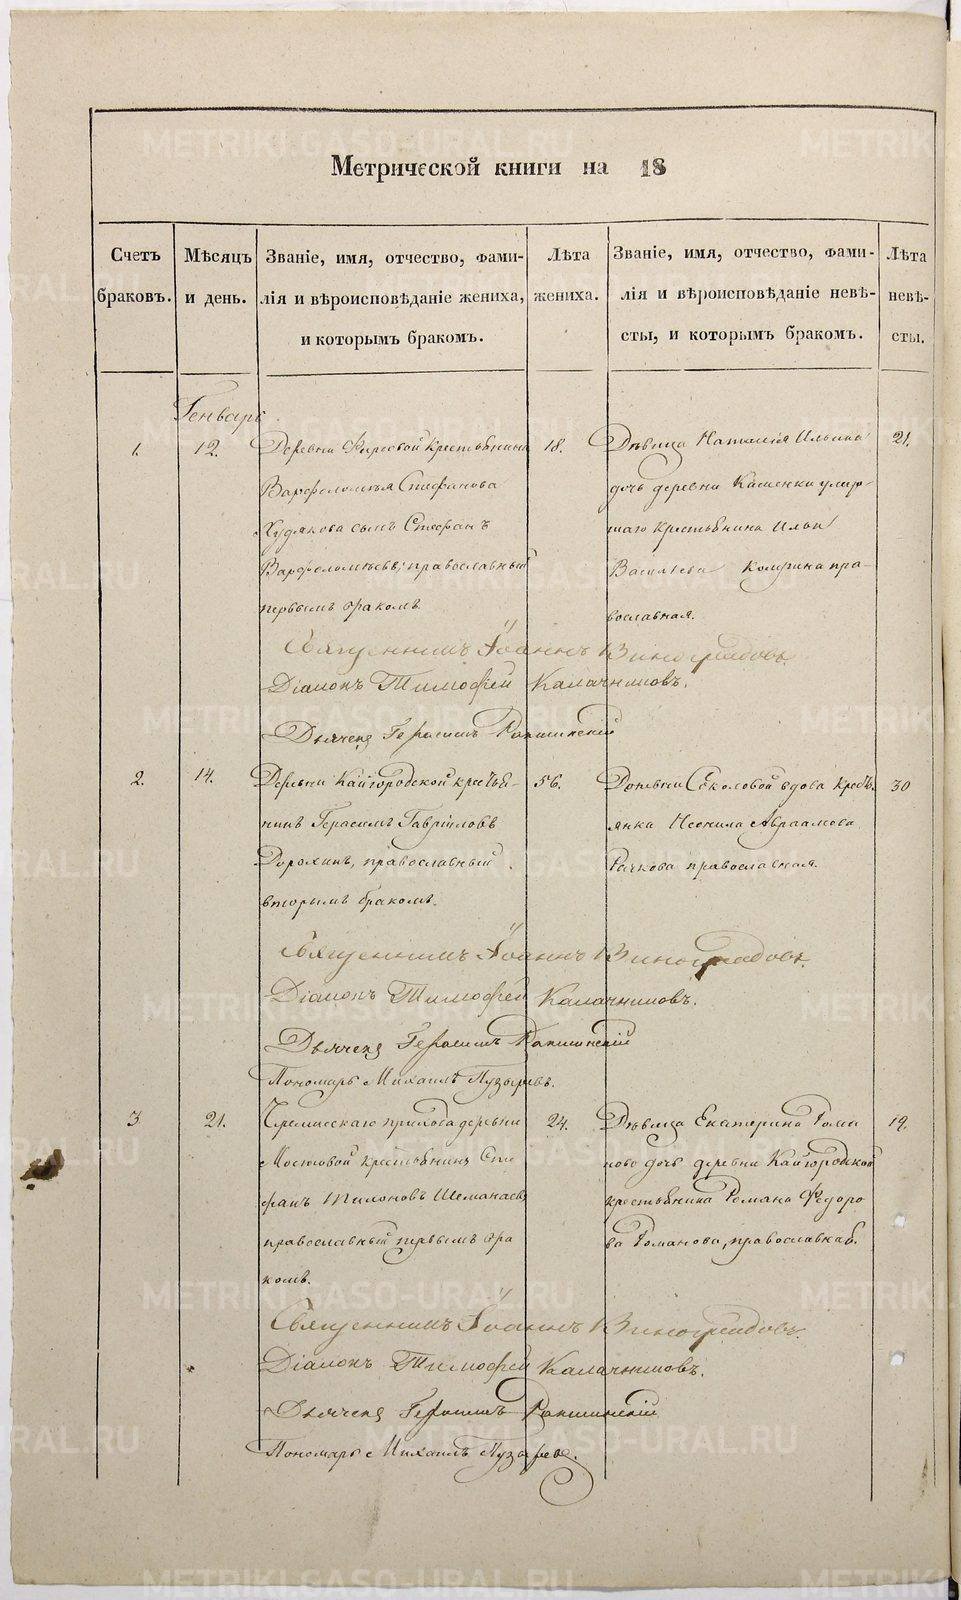 Метрической книги на 18
Счетъ браковъ.
Мѣсяцъ и день.
Званіе, имя, отчество, фами-
лія и вѣроисповѣданіе жениха,
и которымъ бракомъ.
Лѣта
жениха.
Званіе, имя, отчество, фами-
лія и вѣроисповѣданіе невѣ-
сты, и которымъ бракомъ.
Лѣта
невѣ-
сты.
Генварь
1.
12.
Деревни Фирсовой крестьянина
Варфоломѣя Стефанова
Худякова сынъ Стефанъ
Варфоломѣевъ, православный
первымъ бракомъ.
18.
Дѣвица Наталія Ильина
дочь деревни Каменки умер-
шаго крестьянина Ильи
Васильева пра-
вославная.
21.
Священникъ Іоаннъ Виноградовъ
Діаконъ Тимофей Калачниковъ.
Дьячекъ Герасимъ
2.
14.
Деревни Кайгородской кресть-
нинъ Герасимъ Гаврииловъ
Дорохинъ, православный
вторымъ бракомъ.
56.
Деревни Соколовой вдова кресть-
янка Неонила Авраамова
Рычкова православная.
30
Священникъ Іоаннъ Виноградовъ.
Діаконъ Тимофей Калачниковъ.
Дьячекъ Герасимъ
Пономарь Михаилъ Пузыревъ.
3
21.
Черемисскаго прихода деревни
Мостовой крестьянинъ Сте
фанъ Тихоновъ Шеманаевъ
православный первымъ бра
комъ.
24.
Дѣвица Екатерина Рома
нова дочь деревни Кайгородской
крестьянина Романа Федоро
ва Романова, православная.
19.
Священникъ Іоаннъ Виноградовъ.
Діаконъ Тимофей Калачниковъ.
Дьячекъ Герасимъ
Пономарь Михаилъ Пузыревъ.
METRIKI.GASO-URAL.RU